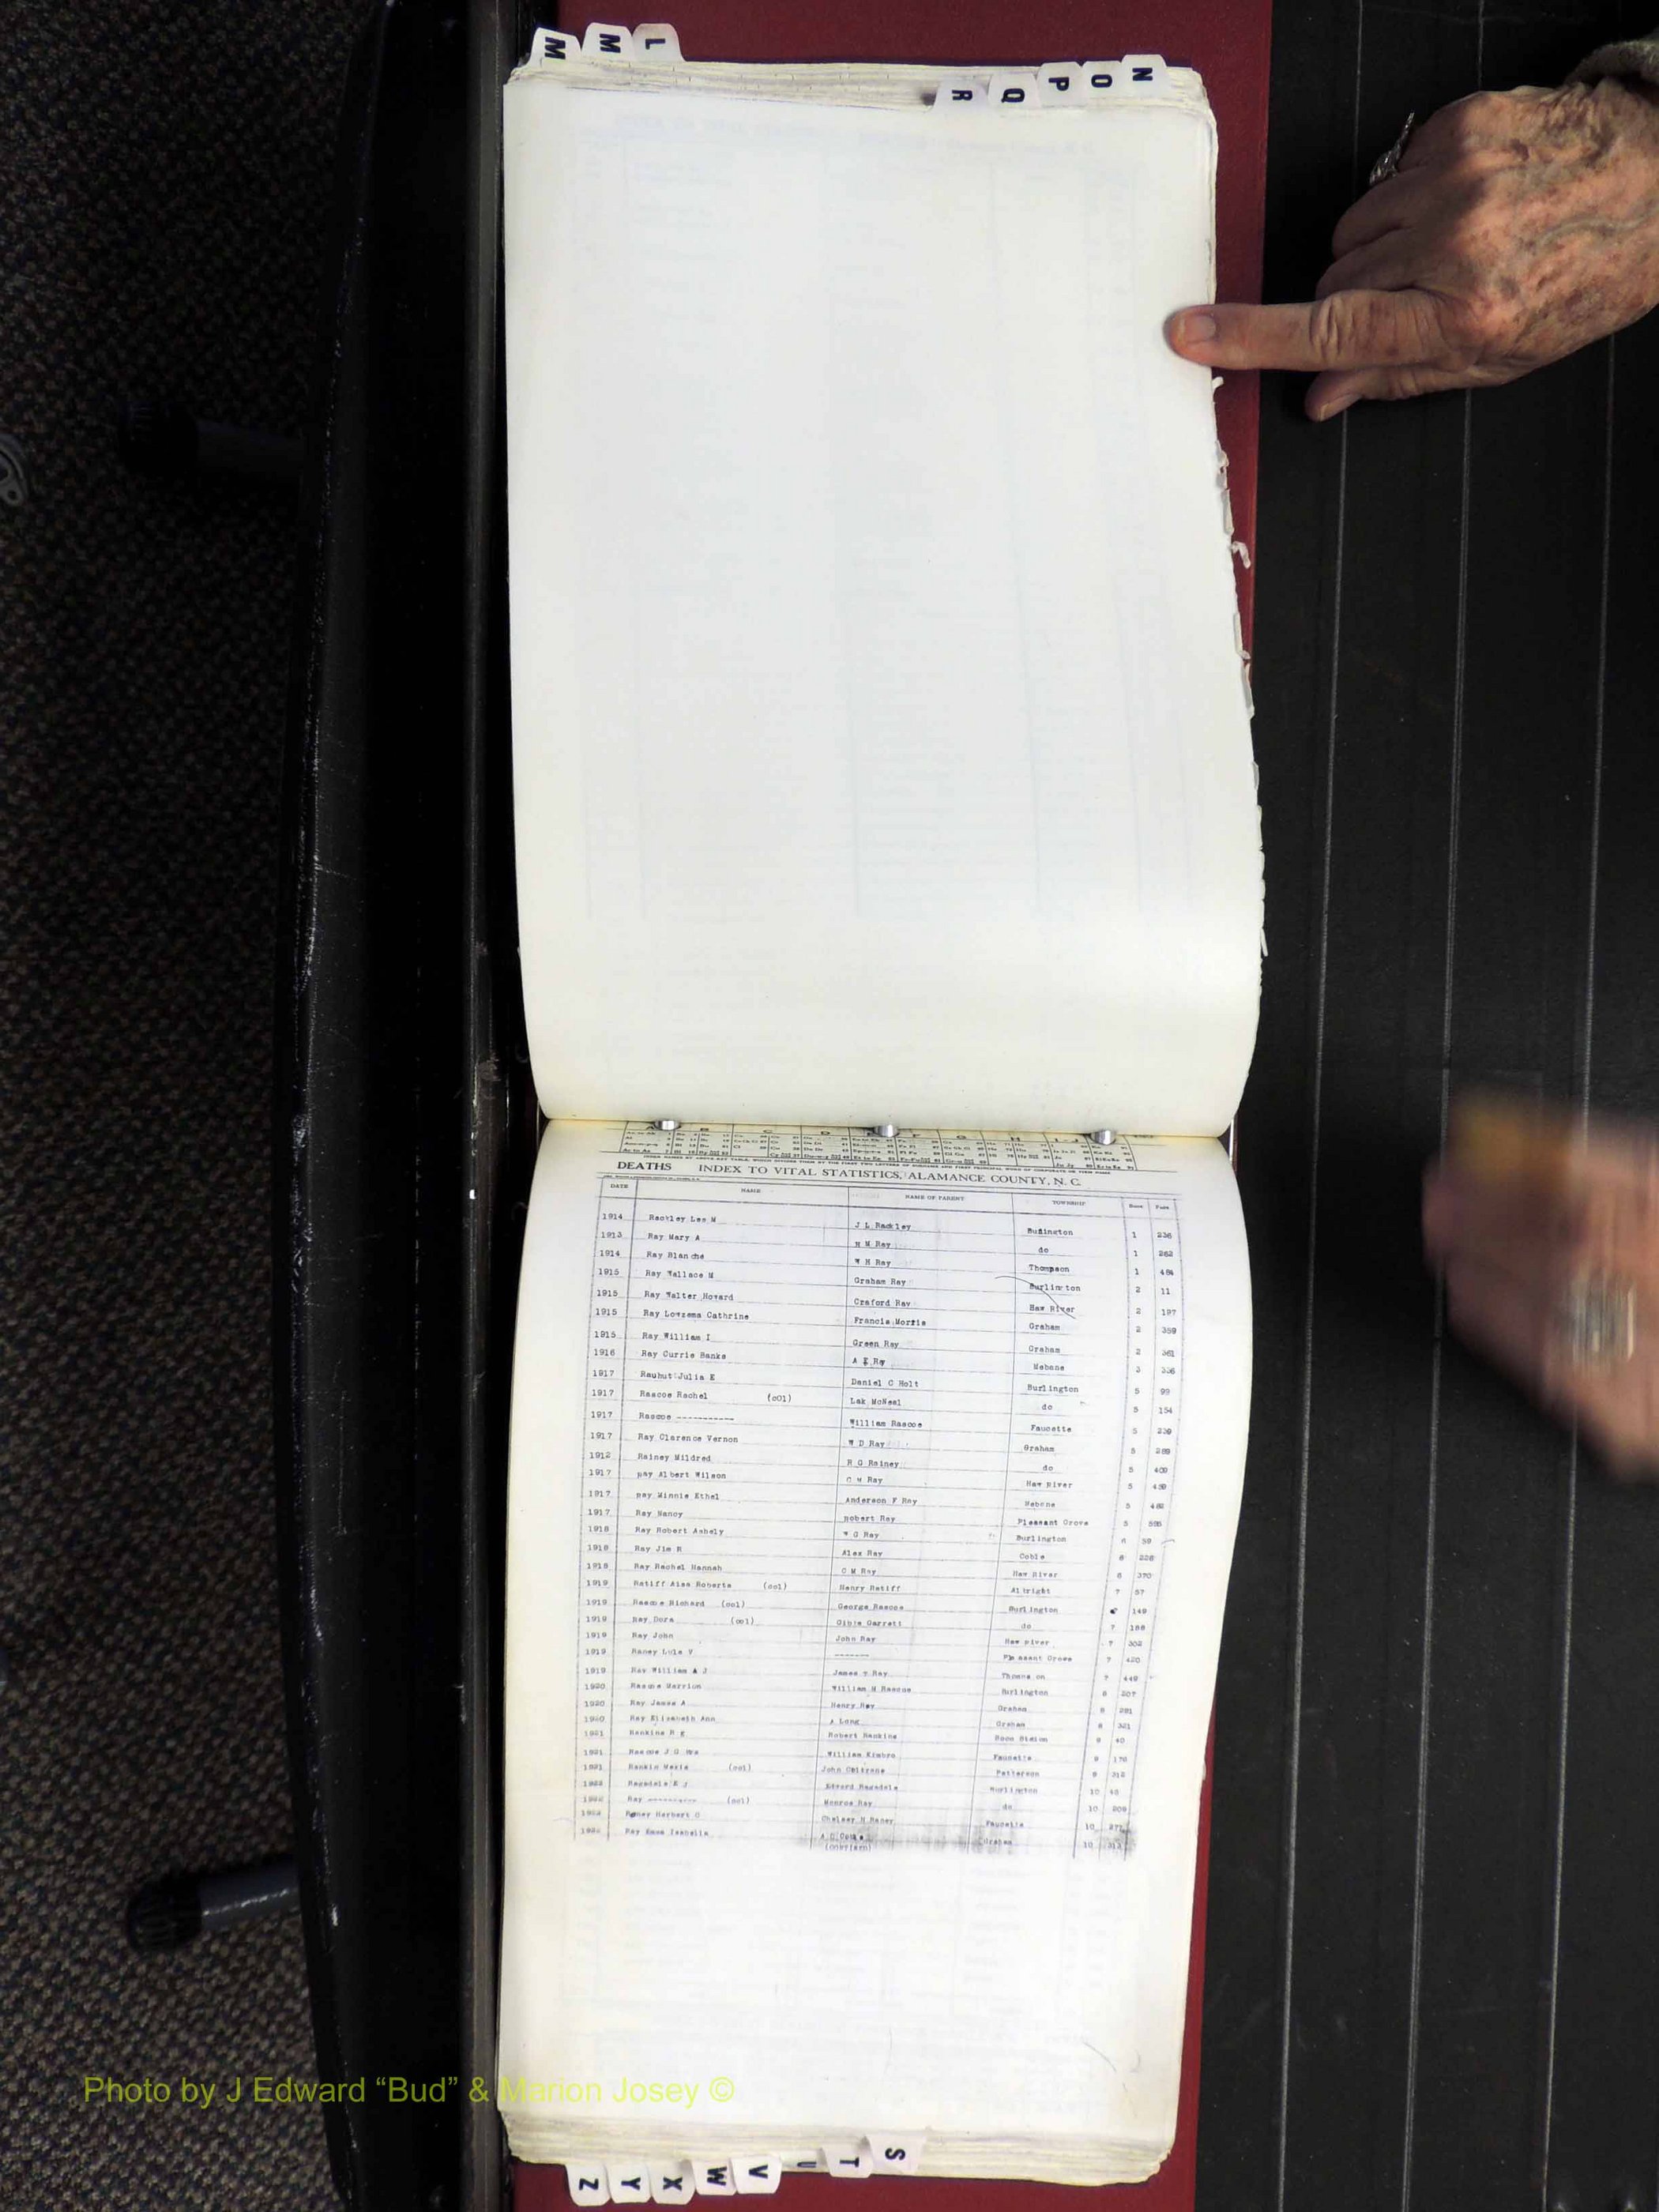 M M L
R Q P O N
A B C D E F G H I-J
DEATHS INDEX TO VITAL STATISTICS, ALAMANCE COUNTY, N. C.
DATE NAME NAME OF PARENT TOWNSHIP Book PAGE
1914 Rackley Lee M J L Rackley Burlington 1 236
1913 Ray Mary A H M Ray do 1 262
1914 Ray Blanche W H Ray Thompson 1 484
1915 Ray Wallace M Graham Ray Burlington 2 11
1915 Ray Walter Howard Craford Ray Haw River 2 197
1915 Ray Lowzema Cathrine Francis Morris Graham 2 359
1915 Ray William I Green Ray Graham 2 361
1916 Ray Currie Banks A E Ray Mebane 3 336
1917 Raubut Julia E Daniel C Holt Burlington 5 99
1917 Rascoe Rachel (col) Lak McNeal do 5 154
1917 Rascoe ----------- William Rascoe Faucette 5 239
1917 Ray Clarence Vernon W D Ray Graham 5 289
1912 Rainey Mildred R G Rainey do 5 409
1917 Ray Albert Wilson C M Ray Haw River 5 459
1917 Ray Minnie Ethel Anderson F Ray Mebane 5
1917 Ray Nancy Robert Ray Pleasant Grove 5
1918 Ray Robert Ashely W G Ray Burlington 6 59
1918 Ray Jim R Alex Ray Coble 6 228
1918 Ray Rachel Hannah C M Ray Haw River 6 370
1919 Ratiff Alse Roberts (col) Henry Ratiff Albright 7 57
1919 Rascoe Richard (col) George Rascoe Burlington 149
1919 Ray Dora (col) Gibie Garrett do 7 188
1919 Ray John John Ray Haw River 7 302
1919 Raney Lula V ------- Pleasant Grove 7 420
1919 Ray William A J James T Ray Thompson 7 449
1920 Rascoe Marrion William M Rascoe Burlington 8 207
1920 Ray James A Henry Ray Graham 8 281
1920 Ray Elizabeth Ann A Long Graham 8 321
1921 Rankins R E Robert Rankins Boon Station 9 40
1921 Rascoe J G Mrs William Kimbro Faucette 9 176
1921 Rankin Mezie (col) John Coltrane Patterson 9 312
1922 Ragsdale E J Edward Ragsdale Burlington 10 45
1922 Ray ---------- (col) Monroe Ray do 10 209
1922 Raney Herbert C Chelsey H Raney Faucette 10 271
1922 Ray Emma Isabella A D Cooke Graham 10 313
Photo by J Edward “Bud” & Marion Josey ©
Z Y X W V U T S